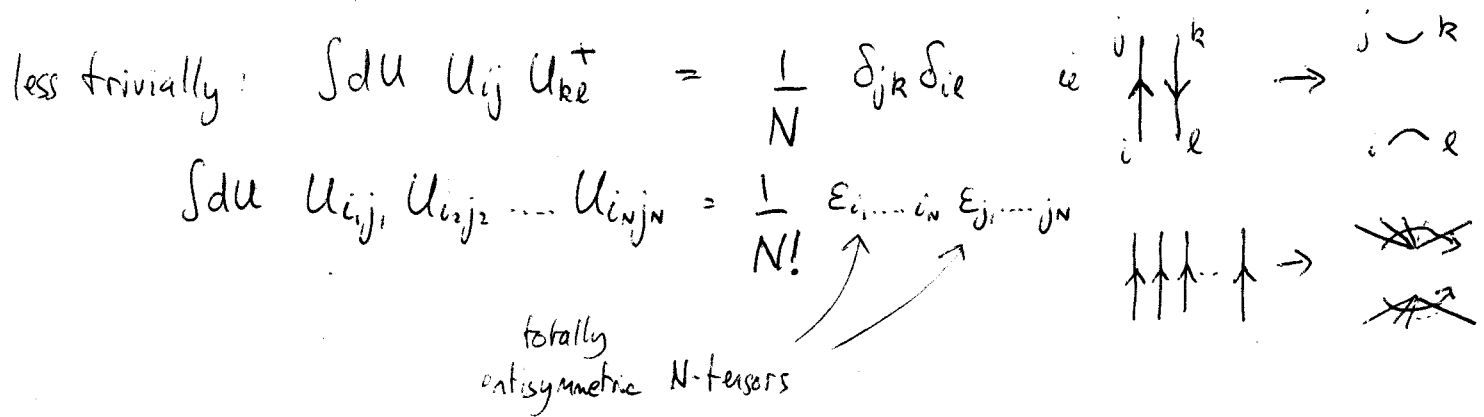 less trivially: ∫dU U_{ij} U^†_{kl} = 1/N δ_{jk} δ_{il} ie j k i l → j k i l
∫dU U_{i₁j₁} U_{i₂j₂} .... U_{i_N j_N} = 1/N! ε_{i₁....i_N} ε_{j₁....j_N} →
totally
antisymmetric N-tensors